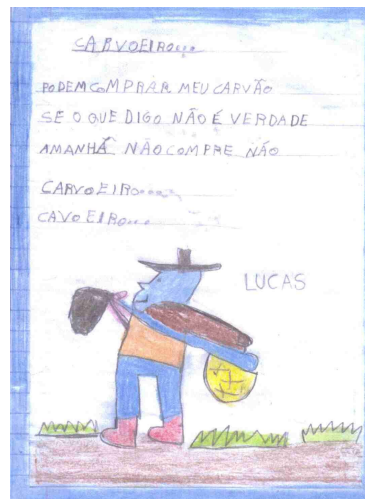 CARVOEIRO...
PODEM COMPRAR MEU CARVÃO
SE O QUE DIGO NÃO É VERDADE
AMANHÃ NÃO COMPRE NÃO
CARVOEIRO....
CAVOEIRO...
LUCAS